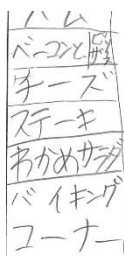 ハム
ベーコンと
チーズ
ステーキ
わかめサラダ
バイキング
コーナー